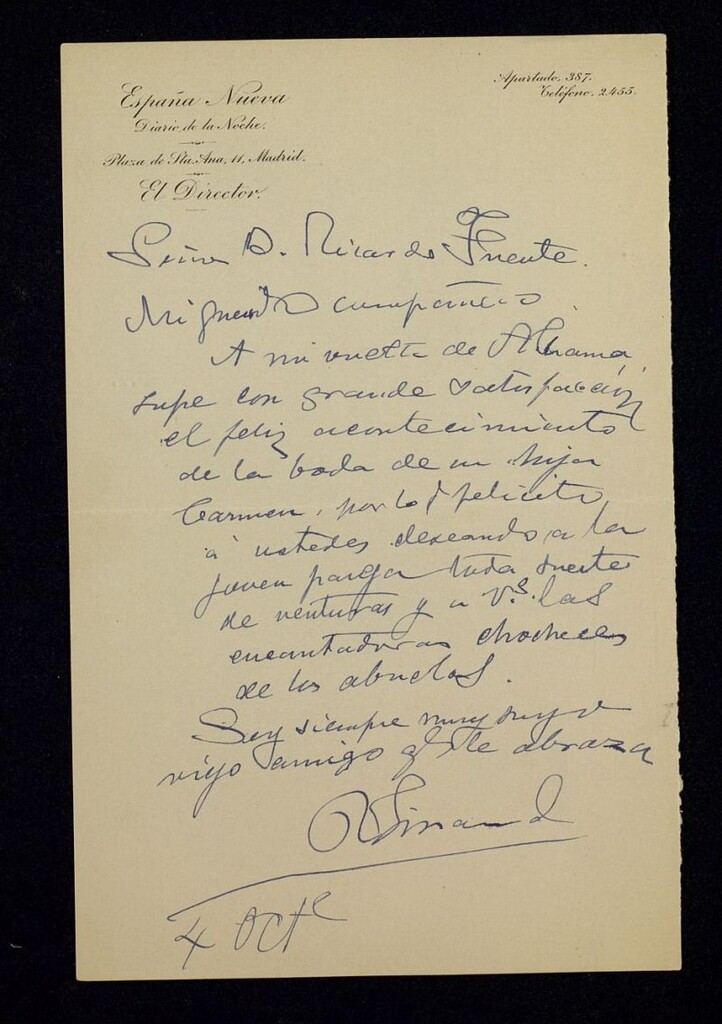 España Nueva
Diario de la Noche.
Plaza de Sta. Ana, 11, Madrid.
El Director.
Apartado, 387.
Teléfono, 2.455.
Señor D. Ricardo Fuente.
Mi querido compañero.
A mi vuelta de Alhama,
supe con grande satisfacción
el feliz acontecimiento
de la boda de su hija
Carmen, por lo q felicito
a ustedes deseando a la
joven pareja toda suerte
de venturas y a Vs. las
encantadoras chocheces
de los abuelos.
Soy siempre muy suyo
viejo amigo q le abraza
4 Octe